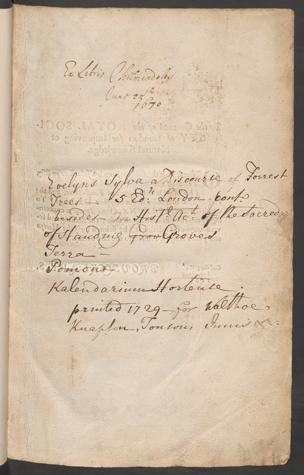 Ex Libris
1670
Evelyns Sylva a Discourse of Forrest
Trees — 5 Edn. London cont.
besides — an Histl. Act. of the Sacredness
of Standing Groves
Terra —
Pomona
Kalendarium Hortense.
printed 1729 – for Walthoe,
Knapton, Tonson, Innis &c: